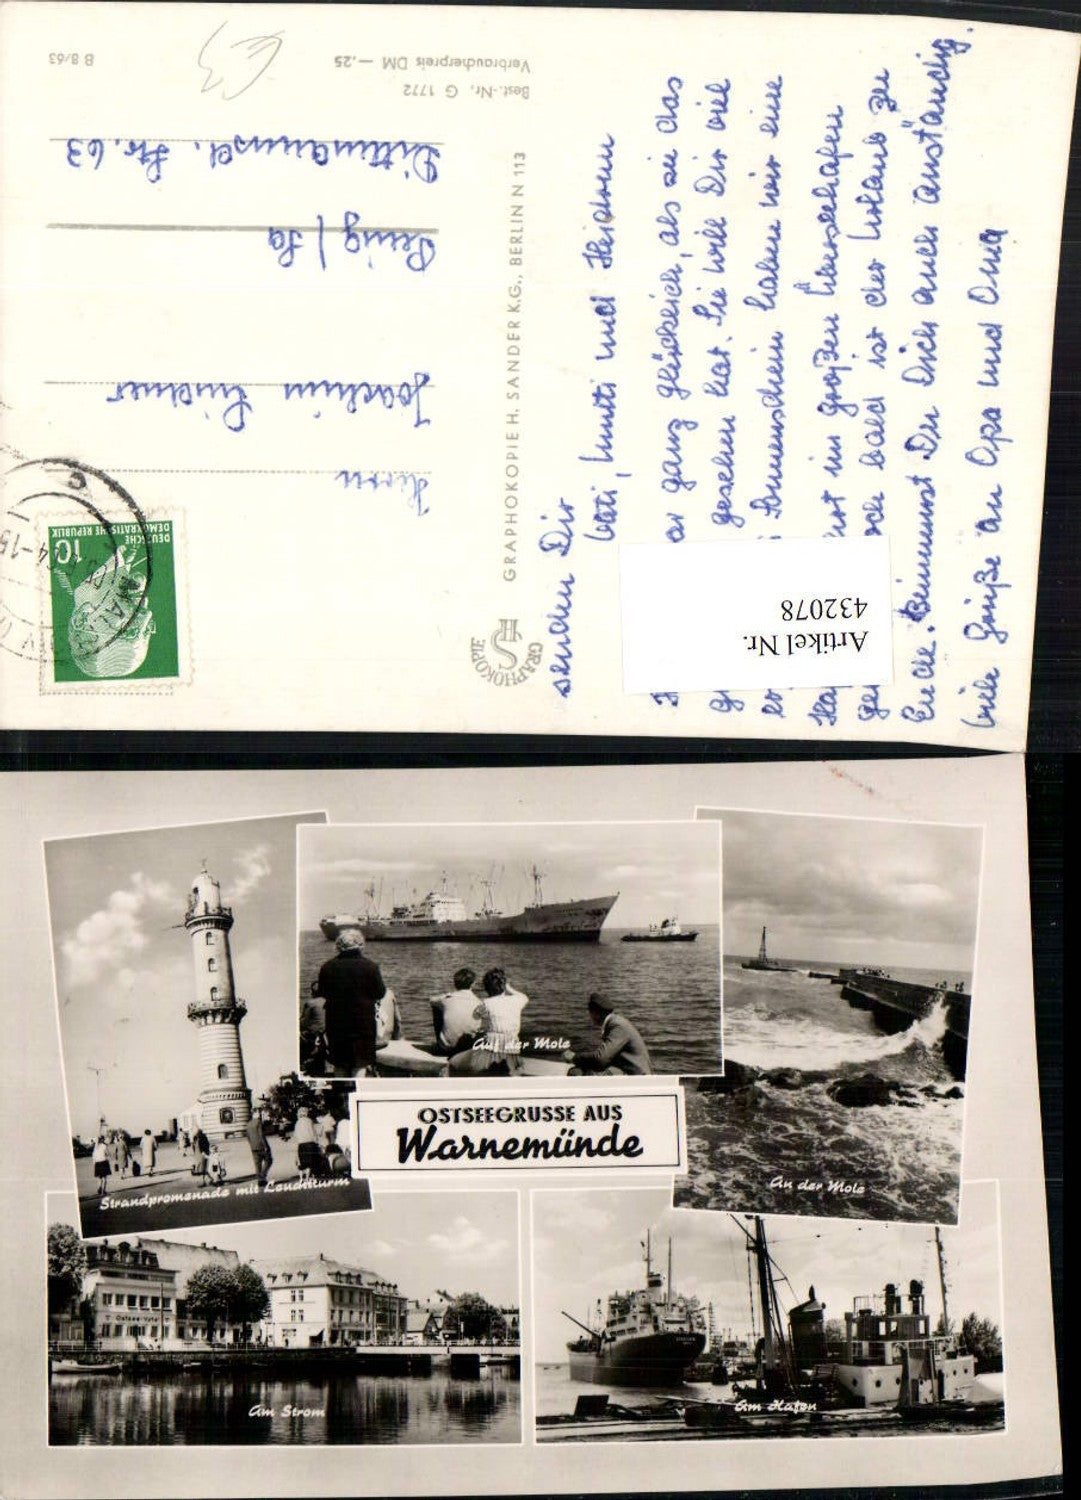 B 8/63
Best.-Nr. G 1772
Verbraucherpreis DM —.25
GRAPHOKOPIE H. SANDER K.G., BERLIN N 113
GRAPHOKOPIE
HS
DEUTSCHE
DEMOKRATISCHE REPUBLIK
10
Herrn
Joachim
Penig / Sa
Str. 63
Viele Grüße an Opa und Oma
senden Dir
Vati, Mutti und Heidrun
ganz glücklich, als sie das
gesehen hat. Sie will Dir viel
Sonnenschein haben wir eine
im großen Überseehafen
bald ist der Urlaub zu
Ende. Benimmst Du Dich auch anständig.
Artikel Nr.
432078
OSTSEEGRÜSSE AUS
Warnemünde
Strandpromenade mit Leuchtturm
Auf der Mole
An der Mole
Ostsee-Hotel
Am Strom
Am Hafen